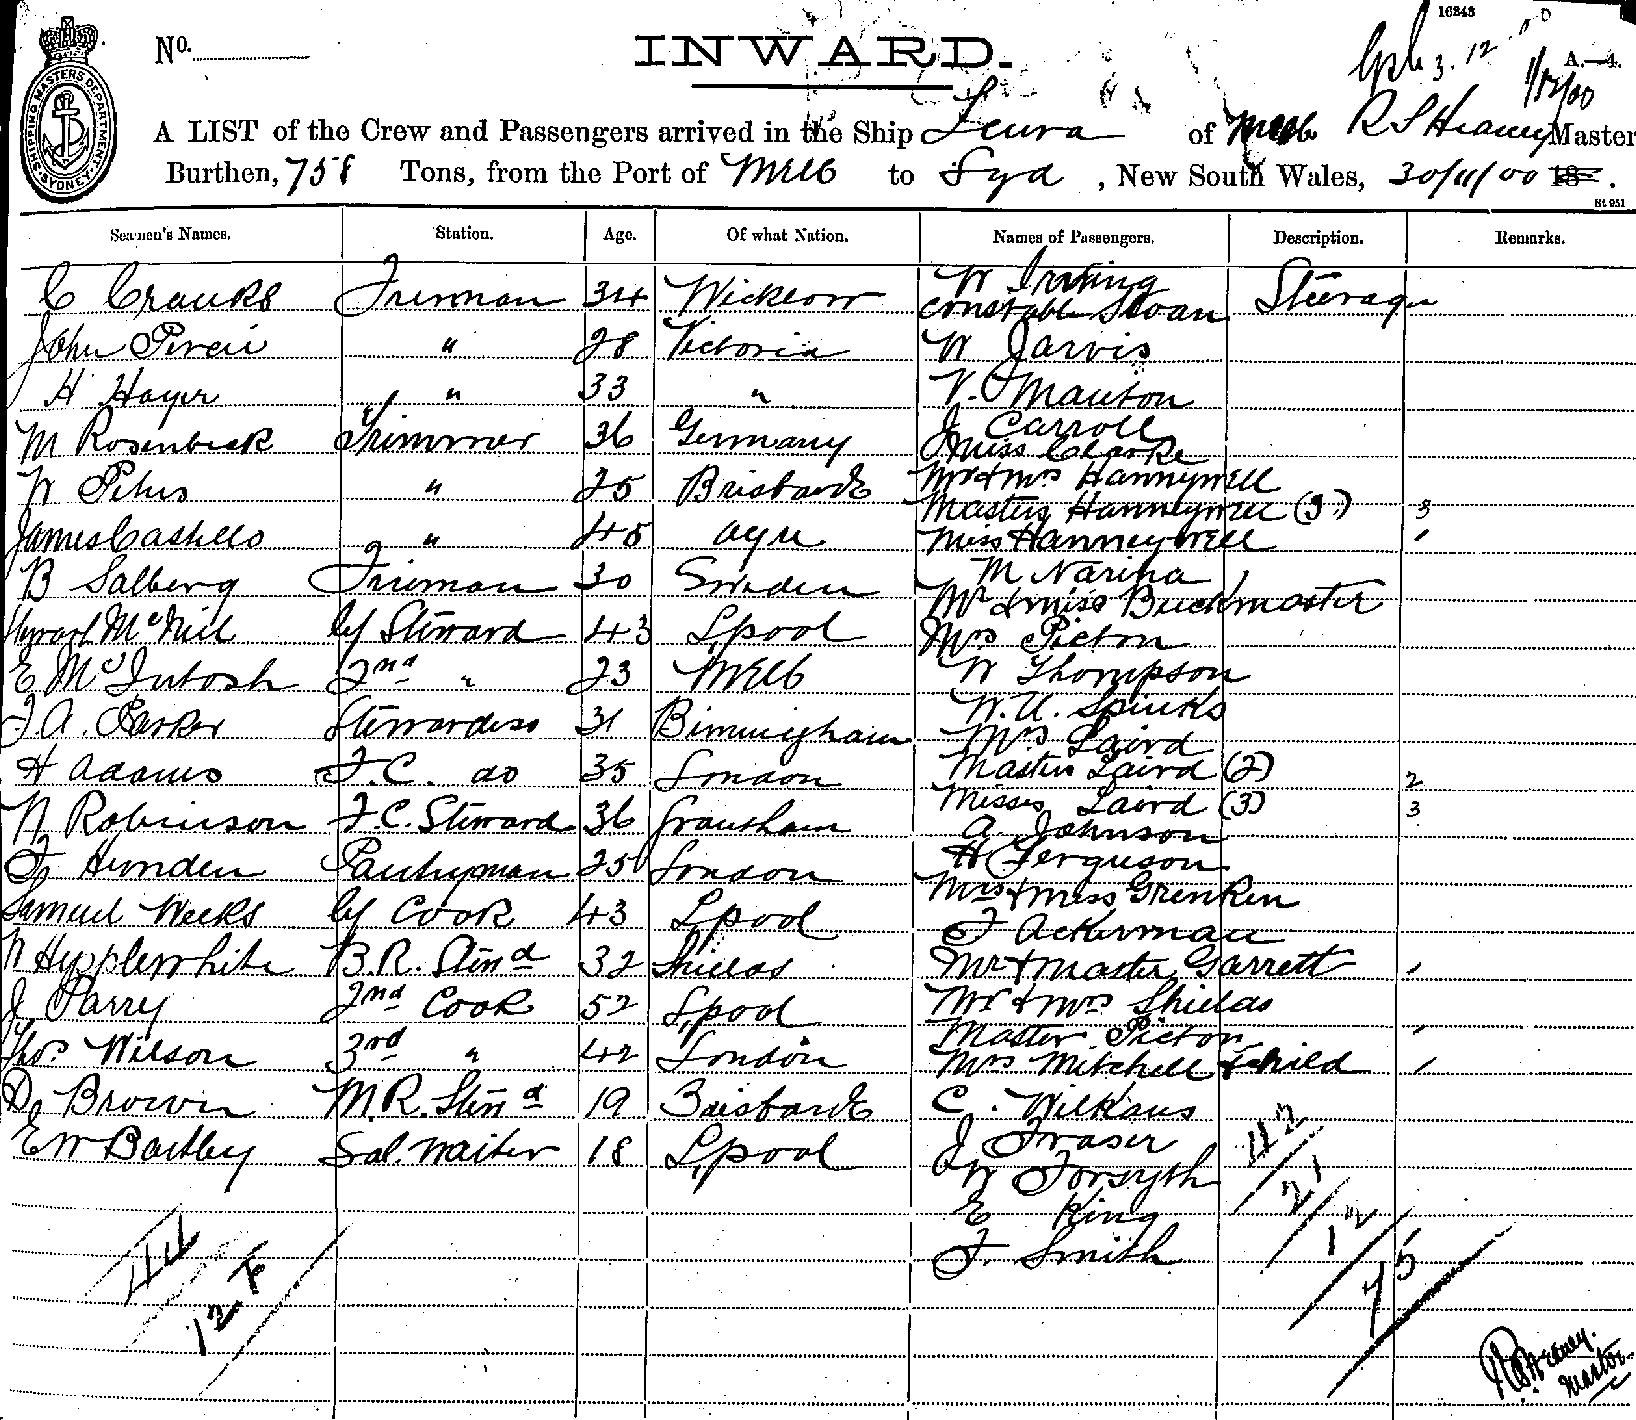 16243
No.
INWARD.
A.—4.
SHIPPING MASTERS DEPARTMENT SYDNEY
3.12
1/12/00
A LIST of the Crew and Passengers arrived in the Ship Leura of Melb R S Heaney Master
Burthen, 758 Tons, from the Port of Melb to Syd , New South Wales, 30/11/00 18 .
St 951
Seamen's Names. Station. Age. Of what Nation. Names of Passengers. Description. Remarks.
W Irving
C Crauks Fireman 34 Wicklow Constable Sloan Steerage
John " 28 Victoria W Jarvis
H Hayer " 33 " V. Mauton
J Carroll
M Rosenbeck Trimmer 36 Germany Miss Clarke
Mr & Mrs Hannywell
W " 25 Brisbane Masters Hanneywell (3) 3
James Castello " 45 Ayre Miss Hanneywell
M Narina
B Salberg Fireman 30 Sweden Mr & Miss Buckmaster
McNeil Cf Steward 43 Lpool Mrs Picton
E McIntosh 2nd " 23 Melb W Thompson
W. U. Spinks
F A. Parker Stewardess 31 Birmingham Mrs Laird
H Adams F.C. do 35 London Masters Laird (2) 2
Misses Laird (3) 3
N Robinson F.C. Steward 36 Grantham A. Johnson
H Ferguson
F Hunden Pantryman 25 London Mrs & Miss Grenken
Samuel Weeks Cf Cook 43 Lpool F Ackerman
N Hypplewhite B.R. Stewd 32 Shields Mr & Master Garrett
J Parry 2nd Cook 52 Lpool Mr & Mrs Shields
Master Picton
Thos Wilson 3rd " 42 London Mrs Mitchell & child
D Brown M.R. Stewd 19 Brisbane C. Wilkans
E W Bartley Sal. Waiter 18 Lpool J Fraser
W Forsyth
E King
F. Smith
42
21
12
75
128
R S Heaney.
Master